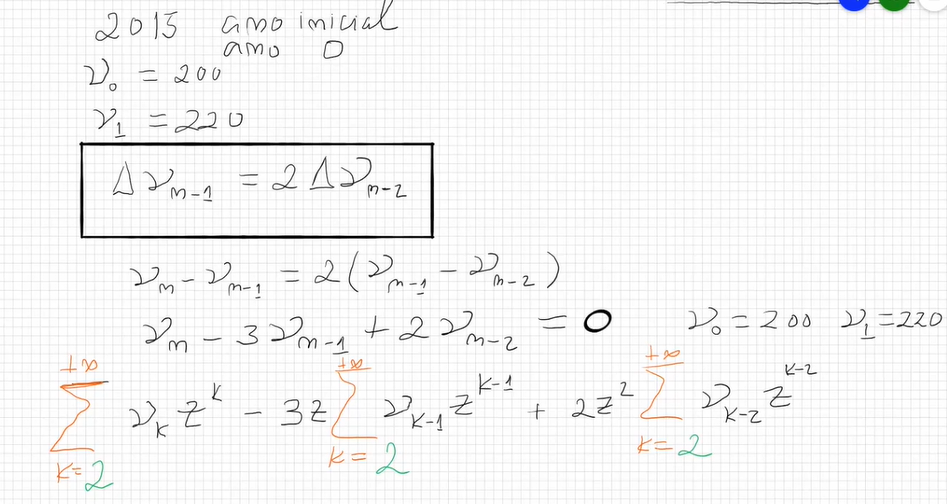 2015 ano inicial
ano 0
ν₀ = 200
ν₁ = 220
Δν_{n-1} = 2Δν_{n-2}
ν_n - ν_{n-1} = 2(ν_{n-1} - ν_{n-2})
ν_n - 3ν_{n-1} + 2ν_{n-2} = 0 ν₀ = 200 ν₁ = 220
\sum_{k=2}^{+∞} ν_k z^k - 3z \sum_{k=2}^{+∞} ν_{k-1} z^{k-1} + 2z² \sum_{k=2}^{+∞} ν_{k-2} z^{k-2}